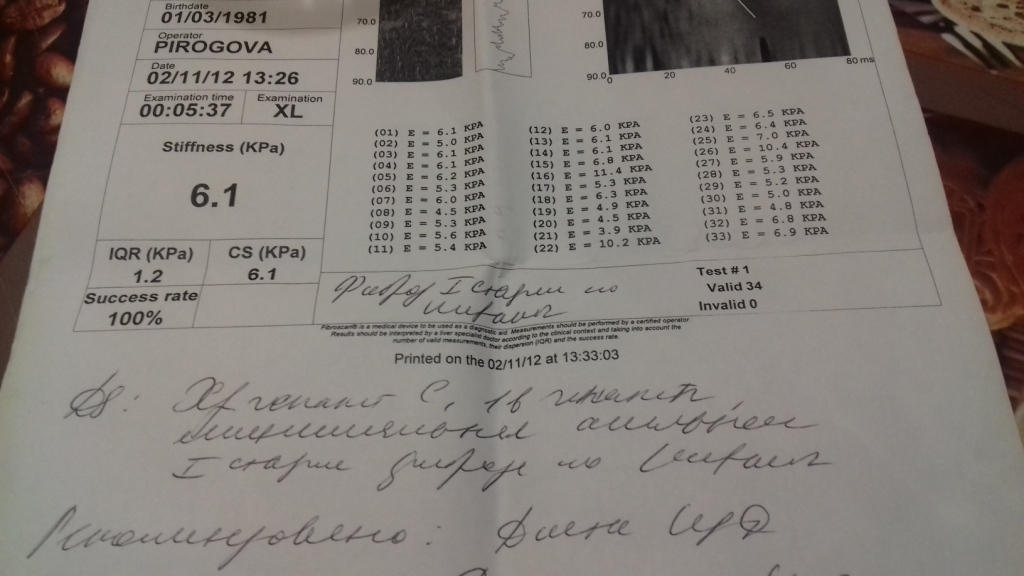 Birthdate
01/03/1981
Operator
PIROGOVA
Date
02/11/12 13:26
Examination time
00:05:37
Examination
XL
Stiffness (KPa)
6.1
IQR (KPa)
1.2
CS (KPa)
6.1
Success rate
100%
70.0
80.0
90.0
70.0
80.0
90.0
0 20 40 60 80 ms
(01) E = 6.1 KPA
(02) E = 5.0 KPA
(03) E = 6.1 KPA
(04) E = 6.1 KPA
(05) E = 6.2 KPA
(06) E = 5.3 KPA
(07) E = 6.0 KPA
(08) E = 4.5 KPA
(09) E = 5.3 KPA
(10) E = 5.6 KPA
(11) E = 5.4 KPA
(12) E = 6.0 KPA
(13) E = 6.1 KPA
(14) E = 6.1 KPA
(15) E = 6.8 KPA
(16) E = 11.4 KPA
(17) E = 5.3 KPA
(18) E = 6.3 KPA
(19) E = 4.9 KPA
(20) E = 4.5 KPA
(21) E = 3.9 KPA
(22) E = 10.2 KPA
(23) E = 6.5 KPA
(24) E = 6.4 KPA
(25) E = 7.0 KPA
(26) E = 10.4 KPA
(27) E = 5.9 KPA
(28) E = 5.3 KPA
(29) E = 5.2 KPA
(30) E = 5.0 KPA
(31) E = 4.8 KPA
(32) E = 6.8 KPA
(33) E = 6.9 KPA
Фиброз I стадии по
Metavir
Test # 1
Valid 34
Invalid 0
Fibroscan® is a medical device to be used as a diagnostic aid. Measurements should be performed by a certified operator.
Results should be interpreted by a liver specialist doctor according to the clinical context and taking into account the
number of valid measurements, their dispersion (IQR) and the success rate.
Printed on the 02/11/12 at 13:33:03
Ds: Хр гепатит С, 1в генотип,
минимальная
I стадия фиброза по Metavir
Рекомендовано: Диета